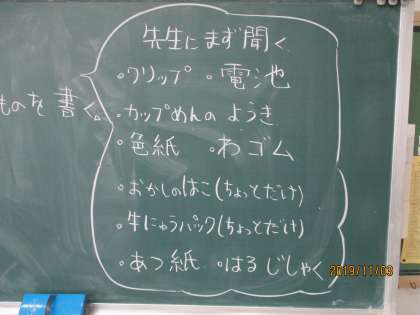 先生にまず聞く
。クリップ 。電池
ものを書く。
。カップめんのようき
。色紙 。わゴム
。おかしのはこ(ちょっとだけ)
。牛にゅうパック(ちょっとだけ)
。あつ紙 。はるじしゃく
2019/11/03